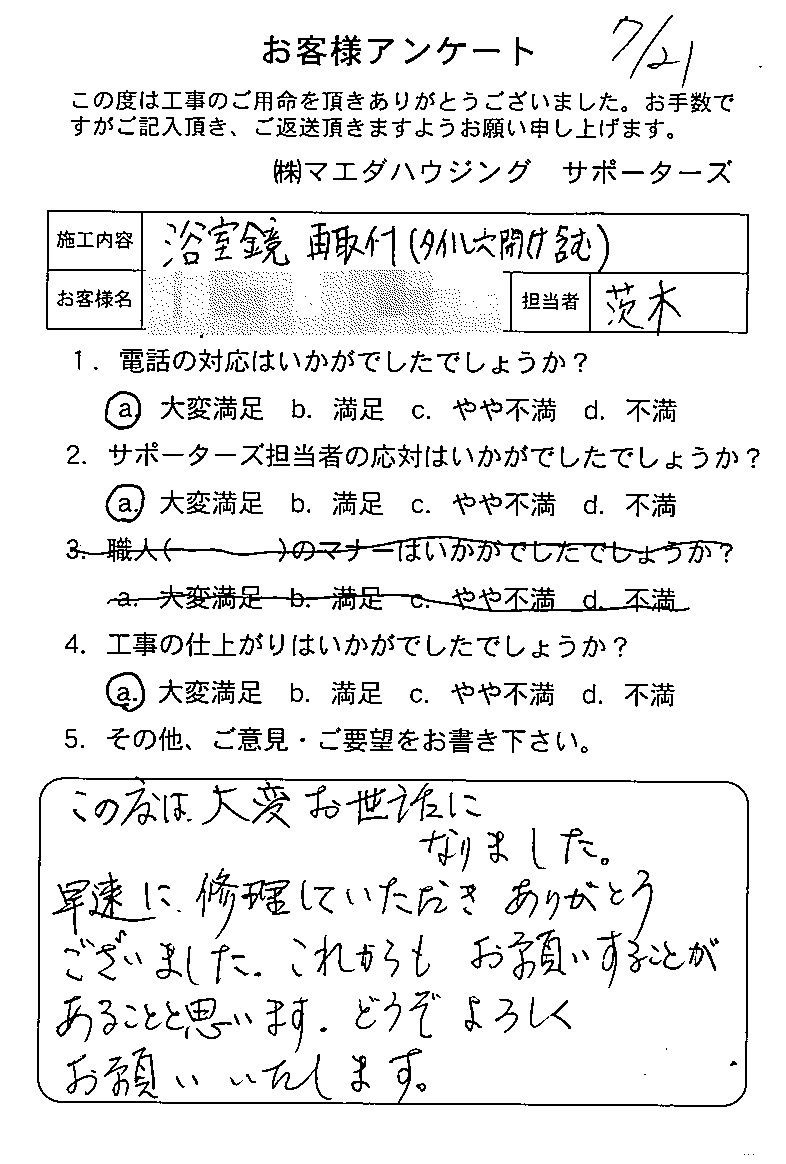 7/21
お客様アンケート
この度は工事のご用命を頂きありがとうございました。お手数で
すがご記入頂き、ご返送頂きますようお願い申し上げます。
㈱マエダハウジング サポーターズ
施工内容 浴室鏡 再取付(タイル穴開け含む)
お客様名 担当者 茨木
1. 電話の対応はいかがでしたでしょうか？
a. 大変満足 b. 満足 c. やや不満 d. 不満
2. サポーターズ担当者の応対はいかがでしたでしょうか？
a. 大変満足 b. 満足 c. やや不満 d. 不満
3. 職人( )のマナーはいかがでしたでしょうか？
a. 大変満足 b. 満足 c. やや不満 d. 不満
4. 工事の仕上がりはいかがでしたでしょうか？
a. 大変満足 b. 満足 c. やや不満 d. 不満
5. その他、ご意見・ご要望をお書き下さい。
この度は、大変お世話に
なりました。
早速に、修理していただき ありがとう
ございました。これからも お願いすることが
あることと思います。どうぞ よろしく
お願いいたします。